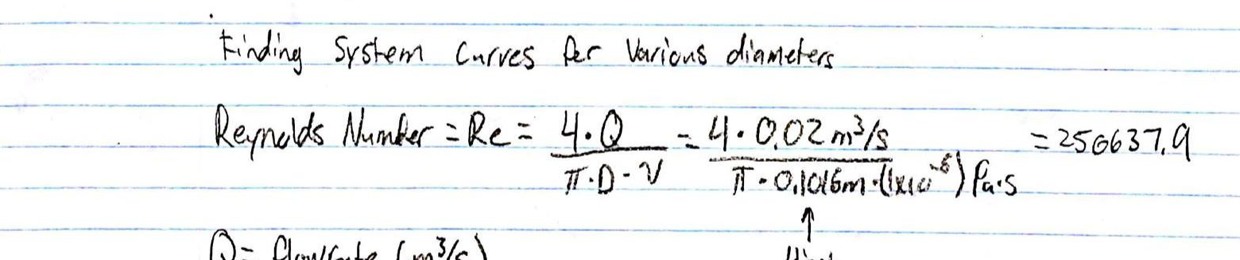 Finding System Curves for Various diameters
Reynolds Number = Re = 4·Q / π·D·ν = 4·0.02 m³/s / π·0.1016m·(1x10⁻⁶) Pa·s = 250637.9
↑
Q = flowrate (m³/s)